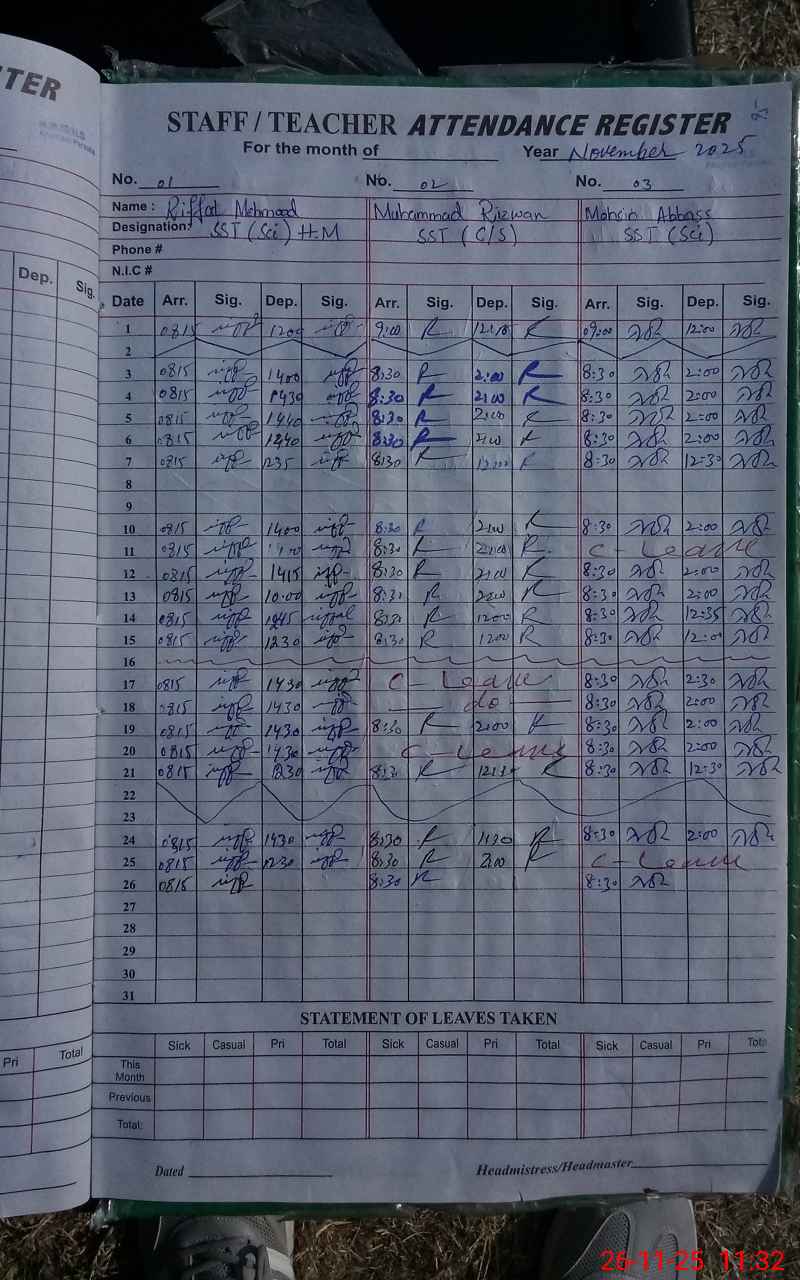 TER
STAFF / TEACHER ATTENDANCE REGISTER
For the month of Year November 2025
No. 01 No. 02 No. 03
Name : Riffat Mehmood Muhammad Rizwan Mohsin Abbass
Designation: SST (Sci) H.M SST (C/S) SST (Sci)
Phone #
N.I.C #
Dep. Sig.
Date Arr. Sig. Dep. Sig. Arr. Sig. Dep. Sig. Arr. Sig. Dep. Sig.
1 0815 1200 9:00 R 12:00 R 09:00 12:00
2
3 0815 1400 8:30 R 2:00 R 8:30 2:00
4 0815 1430 8:30 R 2:00 R 8:30 2:00
5 0815 1440 8:30 R 2:00 R 8:30 2:00
6 0815 1240 8:30 R 2:00 R 8:30 2:00
7 0815 1235 8:30 R R 8:30 12:30
8
9
10 0815 1400 8:30 R 2:00 R 8:30 2:00
11 0815 8:30 R 2:00 R C-Leave
12 0815 1415 8:30 R 2:00 R 8:30 2:00
13 0815 10:00 8:30 R 2:00 R 8:30 2:00
14 0815 1245 8:30 R 1200 R 8:30 12:35
15 0815 1230 8:30 R 1200 R 8:30 12:00
16
17 0815 1430 C-Leave 8:30 2:30
18 0815 1430 do 8:30 2:00
19 0815 1430 8:30 R 2:00 R 8:30 2:00
20 0815 1430 C-Leave 8:30 2:00
21 0815 1230 8:30 R 12:30 R 8:30 12:30
22
23
24 0815 1430 8:30 R 1:30 R 8:30 2:00
25 0815 1230 8:30 R 2:00 R C-Leave
26 0815 8:30 R 8:30
27
28
29
30
31
STATEMENT OF LEAVES TAKEN
Pri Total
Sick Casual Pri Total Sick Casual Pri Total Sick Casual Pri Tota
This Month
Previous
Total:
Dated Headmistress/Headmaster
26-11-25 11:32